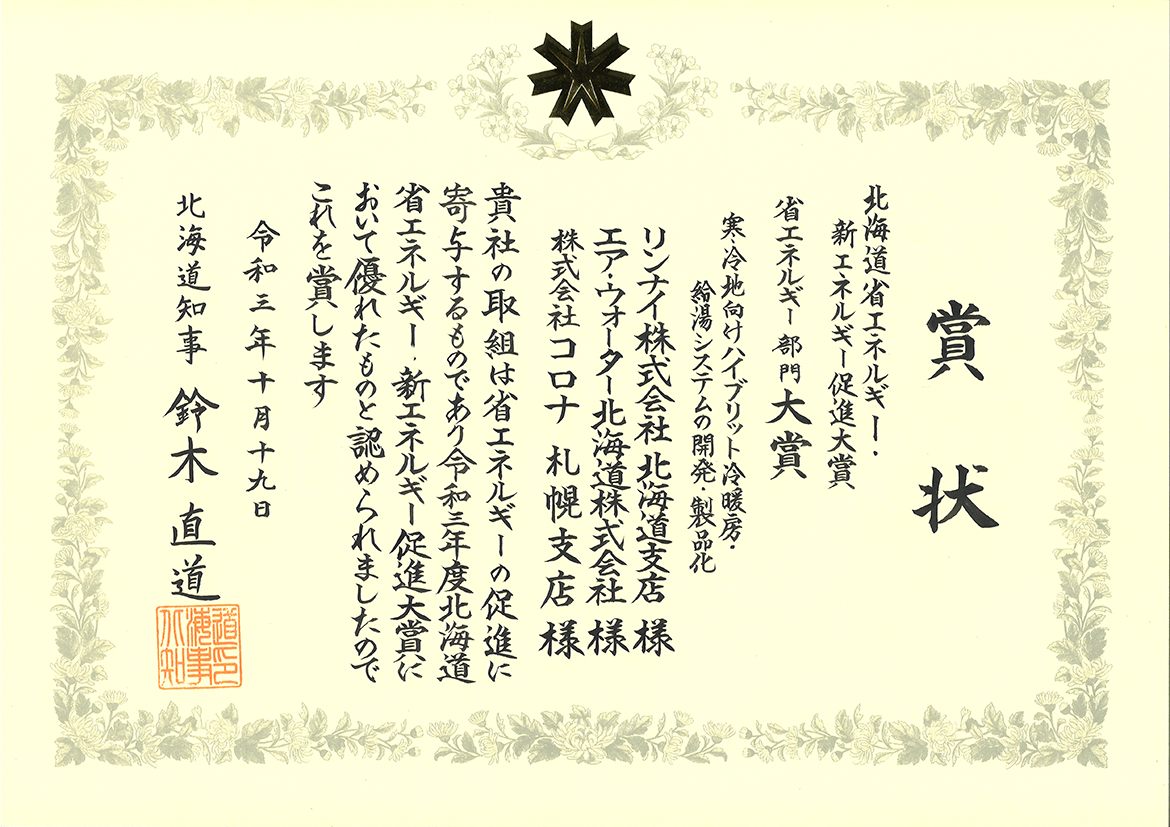 賞状
北海道省エネルギー・
新エネルギー促進大賞
省エネルギー部門大賞
寒冷地向けハイブリット冷暖房・
給湯システムの開発・製品化
リンナイ株式会社 北海道支店 様
エア・ウォーター北海道株式会社 様
株式会社コロナ 札幌支店 様
貴社の取組は省エネルギーの促進に
寄与するものであり令和三年度北海道
省エネルギー・新エネルギー促進大賞に
おいて優れたものと認められましたので
これを賞します
令和三年十月十九日
北海道知事 鈴木直道
道印
海事
北知